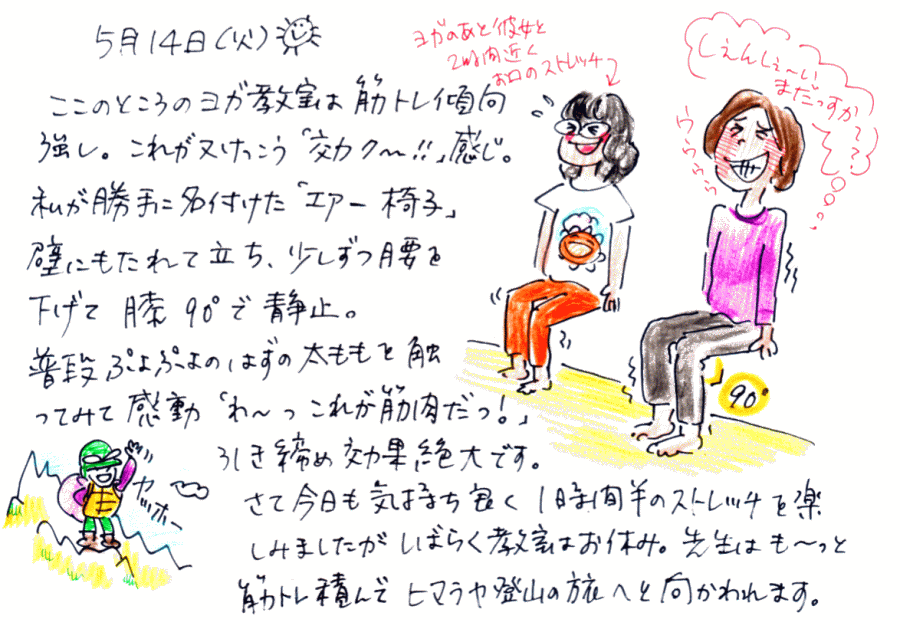 5月14日(火)
ヨガのあと彼女と
2時間近く
お口のストレッチ
しぇんしぇ〜い
まだっすか??
ウゥゥゥゥ
ここのところのヨガ教室は筋トレ傾向
強し。これが又けっこう「効ク〜!!」感じ。
私が勝手に名付けた「エアー椅子」
壁にもたれて立ち、少しずつ腰を
下げて膝90°で静止。
普段ぷよぷよのはずの太ももを触
ってみて感動「わ〜っこれが筋肉だっ!」
引き締め効果絶大です。
90°
ヤッホー
さて今日も気持ち良く1時間半のストレッチを楽
しみましたがしばらく教室はお休み。先生はも〜っと
筋トレ積んでヒマラヤ登山の旅へと向かわれます。